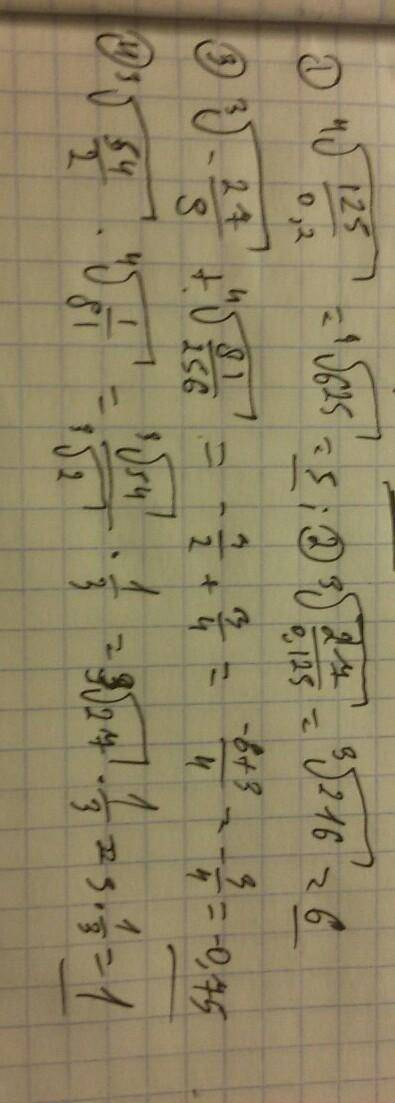 ① ⁴√(125/0,2) = ⁴√625 = 5; ② ³√(27/0,125) = ³√216 = 6
③ ³√(-27/8) + ⁴√(81/256) = -3/2 + 3/4 = (-6+3)/4 = -3/4 = -0,75
④ ³√(54/2) · ⁴√(1/81) = ³√54/³√2 · 1/3 = ³√27 · 1/3 = 3 · 1/3 = 1